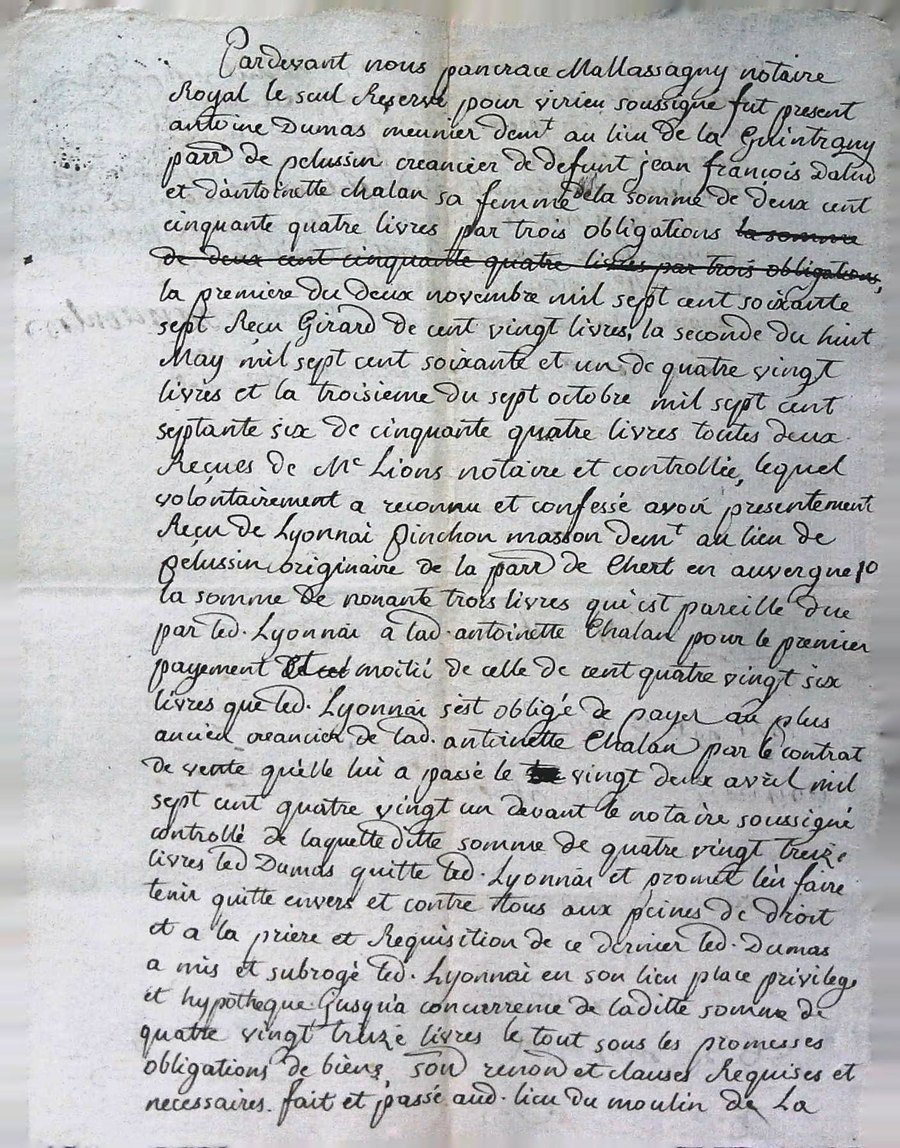 Pardevant nous pancrace Mallassagny notaire
Royal le seul Reservé pour virieu soussigne fut present
antoine Dumas meunier demt au lieu de la Guintrany
parr de pelussin creancier de defunt jean françois
et d'antoinette chalan sa femme dela somme de deux cent
cinquante quatre livres par trois obligations la somme
de deux cent cinquante quatre livres par trois obligations,
la premiere du deux novembre mil sept cent soixante
sept Reçu Girard de cent vingt livres, la seconde du huit
May mil sept cent soixante et un de quatre vingt
livres et la troisieme du sept octobre mil sept cent
septante six de cinquante quatre livres toutes deux
Reçues de Me Lions notaire et controllée, lequel
volontairement a reconnu et confessé avoir presentement
Reçu de Lyonnai Pinchon masson demt au lieu de
pelussin originaire de la parr de Chert en auvergne
la somme de nonante trois livres qui est pareille due
par led. Lyonnai a lad. antoinette Chalan pour le premier
payement moitié de celle de cent quatre vingt six
livres que led. Lyonnai s'est obligé de payer au plus
ancien creancier de lad. antoinette Chalan par le contrat
de vente qu'elle lui a passé le vingt deux avril mil
sept cent quatre vingt un devant le notaire soussigné
controllé de laquelle ditte somme de quatre vingt treize
livres led Dumas quitte led. Lyonnai et promet l'en faire
tenir quitte envers et contre tous aux peines de droit
et a la priere et Requisition de ce dernier led. Dumas
a mis et subrogé led. Lyonnai en son lieu place privilege
et hypotheque Jusqu'a concurrence de laditte somme de
quatre vingt treize livres le tout sous les promesses
obligations de biens, renon et clauses Requises et
necessaires. fait et passé aud. lieu du moulin de La